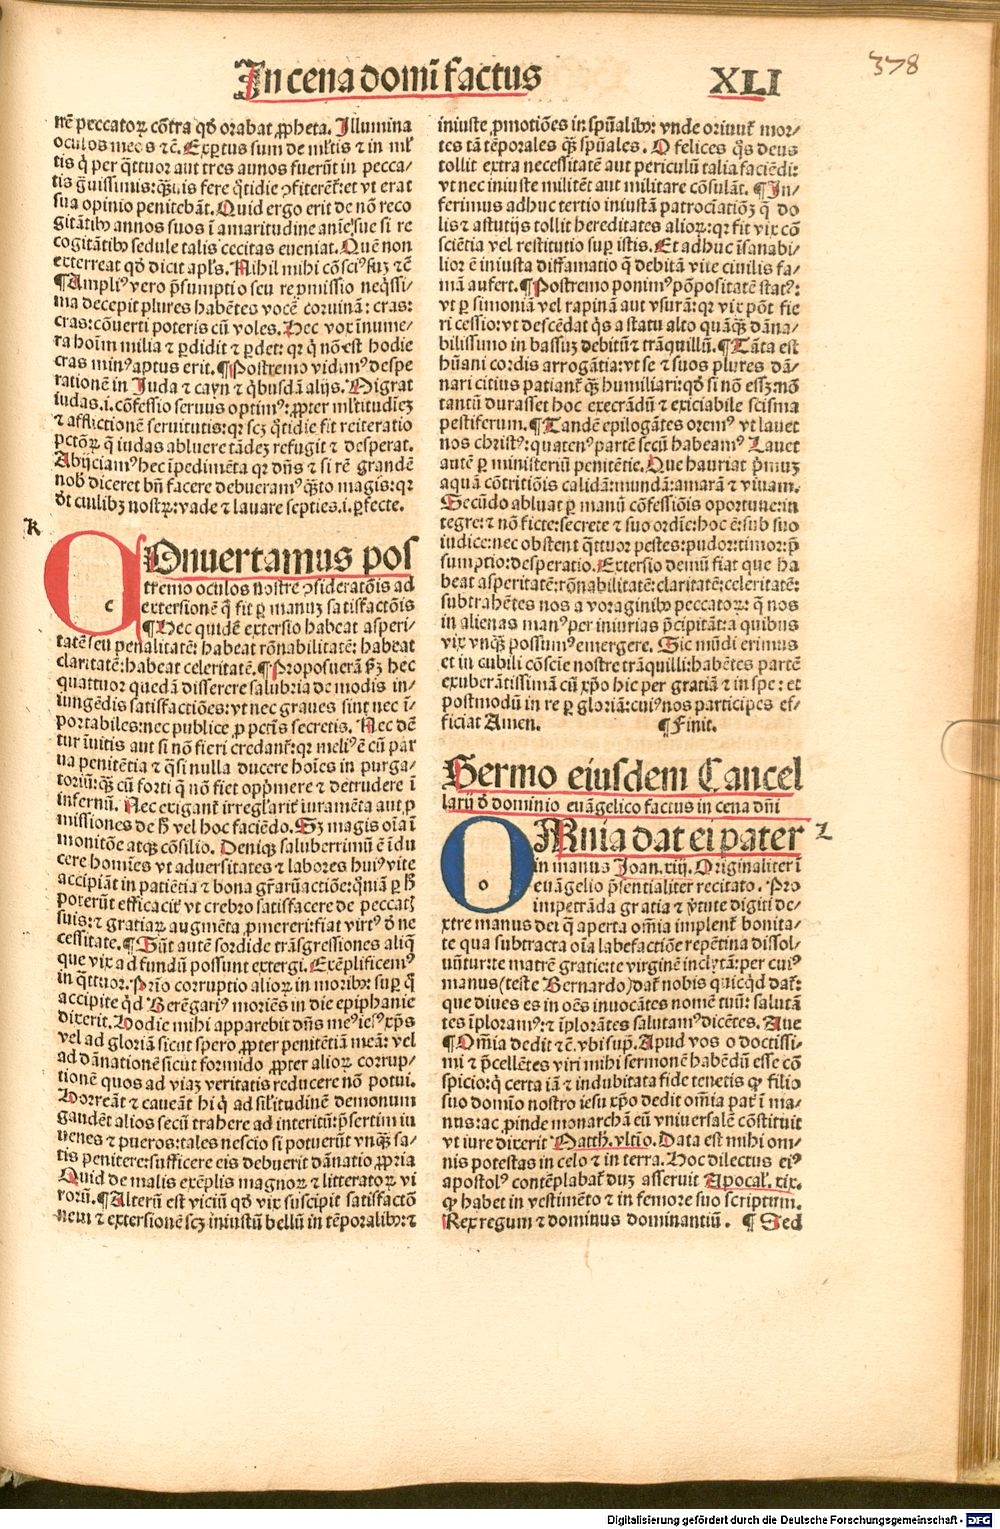 In cena domī factus
XLI
378
nrē peccatoꝝ cōtra qḋ orabat ꝓpheta. Illumina
oculos meos ⁊ċ. Expertus sum de ml̄tis ⁊ in ml̄
tis q̇ per q̄ttuor aut tres annos fuerūt in pecca-
tis g̃uissimis: qꝫuis fere q̄tidie ꝯfiterēt᷑: et vt erat
sua opinio penitebāt. Quid ergo erit de nō reco
gitātibꝰ annos suos ī amaritudine anie̅ sue si re
cogitātibꝰ sedule talis cecitas eueniat. Quē non
exterreat qḋ dicit apl̄s. Nihil mihi cōsciꝰ suꝫ ⁊ċ
¶Ampliꝰ vero p̄sumptio seu repmissio neq̇ssi-
ma decepit plures habētes vocē coruinā: cras:
cras: cōuerti poteris cū voles. Hec vox īnume-
ra hoīm milia ⁊ ꝑdidit ⁊ ꝑdet: qꝛ q̇ nō est hodie
cras minꝰ aptus erit. ¶Postremo vidimꝰ despe
rationē in Juda ⁊ cayn ⁊ q̇busdā alijs. Migrat
iudas .i. cōfessio seruus optimꝰ: ꝓpter ml̄titudīeꝫ
⁊ afflictionē seruitutis: qꝛ scꝫ q̄tidie fit reiteratio
pctōꝝ q̄ iudas abluere tādeꝫ refugit ⁊ desperat.
Abijciamꝰ hec īpedimēta qꝛ dn̄s ⁊ si rē grandē
nob̄ diceret bn̄ facere debueramꝰ q̄ꝫto magis: qꝛ
ḋt cuilibꝫ nostꝝ: vade ⁊ lauare septies .i. ꝑfecte.
K
c
Onuertamus pos
tremo oculos nostre ꝯsideratōis ad
extersionē q̄ fit ꝑ manuꝫ satisfactōis
¶Hec quidē extersio habeat asperi-
tatē seu penalitatē: habeat rōnabilitatē: habeat
claritatē: habeat celeritatē. ¶Proposuerā sꝫ hec
quattuor quedā disserere salubria de modis in-
iungēdis satisfactiōes: vt nec graues sint nec ī-
portabiles: nec publice ꝓ pctīs secretis. Nec dē
tur īuitis aut si nō fieri credant᷑: qꝛ meliꝰ ē cū par
ua penitētia ⁊ q̄si nulla ducere hoīes in purga-
toriū: qꝫ cū forti q̄ nō fiet opp̄mere ⁊ detrudere ī
infernū. Nec exigant᷑ irregl̄arit᷑ iuramēta aut ꝓ
missiones de h̄ vel hoc faciēdo. Sꝫ magis oīa ī
monitōe atqꝫ cōsilio. Deniqꝫ saluberrimū ē īdu
cere homīes vt aduersitates ⁊ labores huiꝰ vite
accipiāt in patiētia ⁊ bona gr̄arū actiōe: qm̄iā ꝑ h̄
poterūt efficacit᷑ vt crebro satisfacere de peccatꝭ
suis: ⁊ gratiaꝝ augmēta ꝓmereri: fiat virtꝰ ḋ ne
cessitate. ¶Sūt autē sordide trāsgressiones aliq̄
que vix ad fundū possunt extergi. Exēplificemꝰ
in q̄ttuor. Prīo corruptio alioꝝ in moribꝰ: sup̄ q̄
accipite qḋ Berēgariꝰ moriēs in die epiphanie
dixerit. Hodie mihi apparebit dn̄s meꝰ iesꝰ xp̄s
vel ad gloriā sicut spero ꝓpter penitētiā meā: vel
ad dānationē sicut formido ꝓpter alioꝝ corrup-
tionē quos ad viaꝫ veritatis reducere nō potui.
Horreāt ⁊ caueāt hi q̇ ad sil̄itudinē demonum
gaudēt alios secū trahere ad interitū: p̄sertim iu
uenes ⁊ pueros: tales nescio si potuerūt vnqꝫ sa-
tis penitere: sufficere eis debuerit dānatio ꝓpria
Quid de malis exēplis magnoꝝ ⁊ litteratoꝝ vi
rorū. ¶Alterū est viciū qḋ vix suscipit satisfactō
nem ⁊ extersionē scꝫ iniustū bellū in tēporalibꝰ: ⁊
iniuste ꝓmotiōes in spūalibꝰ: vnde oriunt᷑ mor-
tes tā tēporales qꝫ spūales. O felices q̇s deus
tollit extra necessitatē aut periculū talia faciēdi:
vt nec iniuste militēt aut militare cōsulāt. ¶In-
ferimus adhuc tertio iniustā patrociatiōꝫ q̄ do
lis ⁊ astutijs tollit hereditates alioꝝ: qꝛ fit vix cō
sciētia vel restitutio suꝑ istis. Et adhuc īsanabi-
lior ē iniusta diffamatio q̄ debitā vite ciuilis fa-
mā aufert. ¶Postremo ponimꝰ p̄positatē statꝰ:
vt ꝑ simoniā vel rapinā aut vsurā: qꝛ vix pōt fie
ri cessio: vt descēdat q̇s a statu alto quāqꝫ dāna-
bilissimo in bassuꝫ debitū ⁊ trāquillū. ¶Tāta est
hūani cordis arrogātia: vt se ⁊ suos plures dā-
nari citius patiant᷑ qꝫ humiliari: qḋ si nō essꝫ: nō
tantū durasset hoc execrādū ⁊ exiciabile scisma
pestiferum. ¶Tandē epilogātes oremꝰ vt lauet
nos christꝰ: quatenꝰ partē secū habeamꝰ Lauet
autē ꝑ ministeriū penitētie. Que hauriat p̄muꝫ
aquā cōtritiōis calidā: mundā: amarā ⁊ viuam.
Secūdo abluat ꝑ manū cōfessiōis oportune: in
tegre: ⁊ nō ficte: secrete ⁊ suo ordīe: hoc ē: sub suo
iudice: nec obstent q̄ttuor pestes: pudor: timor: p̄
sumptio: desperatio. Extersio demū fiat que ha
beat asperitatē: rōnabilitatē: claritatē: celeritatē:
subtrahētes nos a voraginibꝰ peccatoꝝ: q̄ nos
in alienas manꝰ per iniurias p̄cipitāt: a quibus
vix vnqꝫ possumꝰ emergere. Sic mūdi erimus
et in cubili cōscie nostre trāquilli: habētes partē
exuberātissimā cū xp̄o hic per gratiā ⁊ in spe: et
postmodū in re ꝑ gloriā: cuiꝰ nos participes ef-
ficiat Amen. ¶Finit.
Sermo eiusdem Cancel
larij ḋ dominio euāgelico factus in cena dn̄i
L
o
Mnia dat ei pater
in manus Joan. xiij. Originaliter ī
euāgelio p̄sentialiter recitato. Pro
impetrāda gratia ⁊ v̄tute digiti de-
xtre manus dei q̄ aperta om̄ia implent᷑ bonita-
te qua subtracta oīa labefactiōe repētina dissol-
uūtur: te matrē gratie: te virginē inclytā: per cuiꝰ
manus (teste Bernardo) dat᷑ nobis quicq̇d dat᷑:
que diues es in oēs inuocātes nomē tuū: salutā
tes īploramꝰ: ⁊ īplorātes salutamꝰ dicētes. Aue
¶Om̄ia dedit ⁊ċ. vbi sup̄. Apud vos o doctissi-
mi ⁊ p̄cellētes viri mihi sermonē habēdū esse cō
spicio: q̇ certa iā ⁊ indubitata fide tenetis ꝙ filio
suo domīo nostro iesu xp̄o dedit om̄ia pat᷑ ī ma-
nus: ac ꝓinde monarchā eū vniuersalē cōstituit
vt iure dixerit Matth. vltīo. Data est mihi om-
nis potestas in celo ⁊ in terra. Hoc dilectus eiꝰ
apostolꝰ contēplabat᷑ duꝫ asseruit Apocal̄. xix.
ꝙ habet in vestimēto ⁊ in femore suo scriptum.
Rex regum ⁊ dominus dominantiū. ¶Sed
Digitalisierung gefördert durch die Deutsche Forschungsgemeinschaft - DFG